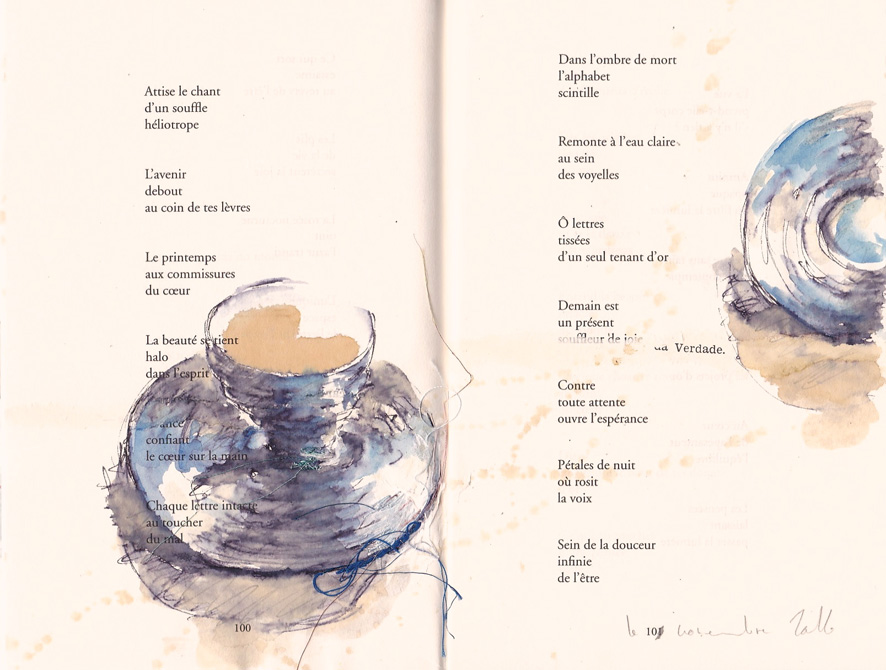 Attise le chant
d'un souffle
héliotrope
L'avenir
debout
au coin de tes lèvres
Le printemps
aux commissures
du cœur
La beauté se tient
halo
dans l'esprit
confiant
le cœur sur la main
Chaque lettre intacte
au toucher
du mal
100
Dans l'ombre de mort
l'alphabet
scintille
Remonte à l'eau claire
au sein
des voyelles
Ô lettres
tissées
d'un seul tenant d'or
Demain est
un présent
souffleur de joie
Verdade.
Contre
toute attente
ouvre l'espérance
Pétales de nuit
où rosit
la voix
Sein de la douceur
infinie
de l'être
le novembre